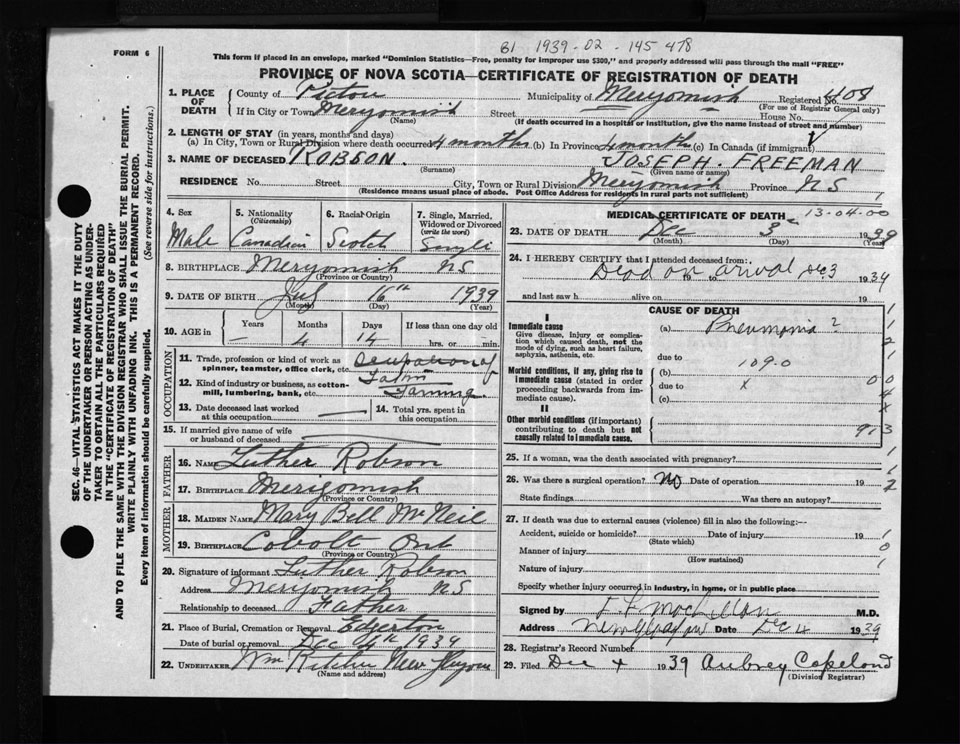 B1 1939-02-145 478
FORM 6
This form if placed in an envelope, marked "Dominion Statistics—Free, penalty for improper use $300," and properly addressed will pass through the mail "FREE"
PROVINCE OF NOVA SCOTIA—CERTIFICATE OF REGISTRATION OF DEATH
1. PLACE OF DEATH County of Pictou Municipality of Merigomish Registered No. 408
(For use of Registrar General only)
If in City or Town Merigomish Street House No.
(Name) (If death occurred in a hospital or institution, give the name instead of street and number)
2. LENGTH OF STAY (in years, months and days)
(a) In City, Town or Rural Division where death occurred 4 months (b) In Province 4 months (c) In Canada (if immigrant)
3. NAME OF DECEASED ROBSON. JOSEPH. FREEMAN
(Surname) (Given name or names)
RESIDENCE No. Street City, Town or Rural Division Merigomish Province N S
(Residence means usual place of abode. Post Office Address for residents in rural parts not sufficient)
4. Sex Male
5. Nationality (Citizenship) Canadian
6. Racial Origin Scotch
7. Single, Married, Widowed or Divorced (write the word) Single
8. BIRTHPLACE Merigomish N S
(Province or Country)
9. DATE OF BIRTH July 16th 1939
(Month) (Day) (Year)
10. AGE in Years – Months 4 Days 14 If less than one day old hrs. or min.
OCCUPATION
11. Trade, profession or kind of work as spinner, teamster, office clerk, etc. Occupation of
12. Kind of industry or business, as cotton-mill, lumbering, bank, etc. Farming
13. Date deceased last worked at this occupation
14. Total yrs. spent in this occupation
15. If married give name of wife or husband of deceased
FATHER
16. Name Luther Robson
17. Birthplace Merigomish
(Province or Country)
MOTHER
18. Maiden Name Mary Bell McNeil
19. Birthplace Cobolt Ont
(Province or Country)
20. Signature of informant Luther Robson
Address Merigomish N S
Relationship to deceased Father
21. Place of Burial, Cremation or Removal Edgerton
Date of burial or removal Dec 4th 1939
22. Undertaker Wm Kitchen New Glasgow
(Name and address)
MEDICAL CERTIFICATE OF DEATH 13-04-00
23. DATE OF DEATH Dec 3 1939
(Month) (Day) (Year)
24. I HEREBY CERTIFY that I attended deceased from:
Dead on arrival Dec 3 1939
and last saw h alive on 19
CAUSE OF DEATH
I
Immediate cause
Give disease, injury or complication which caused death, not the mode of dying, such as heart failure, asphyxia, asthenia, etc.
(a) Pneumonia ?
due to
Morbid conditions, if any, giving rise to immediate cause (stated in order proceeding backwards from immediate cause).
(b) 109.0
due to x
(c)
II
Other morbid conditions (if important) contributing to death but not causally related to immediate cause.
25. If a woman, was the death associated with pregnancy?
26. Was there a surgical operation? No Date of operation 19
State findings Was there an autopsy?
27. If death was due to external causes (violence) fill in also the following:—
Accident, suicide or homicide? Date of injury 19
(State which)
Manner of injury
(How sustained)
Nature of injury
Specify whether injury occurred in industry, in home, or in public place
Signed by MacLellan M.D.
Address New Glasgow Date Dec 4 1939
28. Registrar's Record Number
29. Filed Dec 4 1939 Aubrey Copeland
(Division Registrar)
SEC. 46—VITAL STATISTICS ACT MAKES IT THE DUTY
OF THE UNDERTAKER OR PERSON ACTING AS UNDER-
TAKER TO OBTAIN ALL THE PARTICULARS REQUIRED
IN THE "CERTIFICATE OF REGISTRATION OF DEATH"
AND TO FILE THE SAME WITH THE DIVISION REGISTRAR WHO SHALL ISSUE THE BURIAL PERMIT.
WRITE PLAINLY WITH UNFADING INK. THIS IS A PERMANENT RECORD.
Every item of information should be carefully supplied. (See reverse side for instructions.)